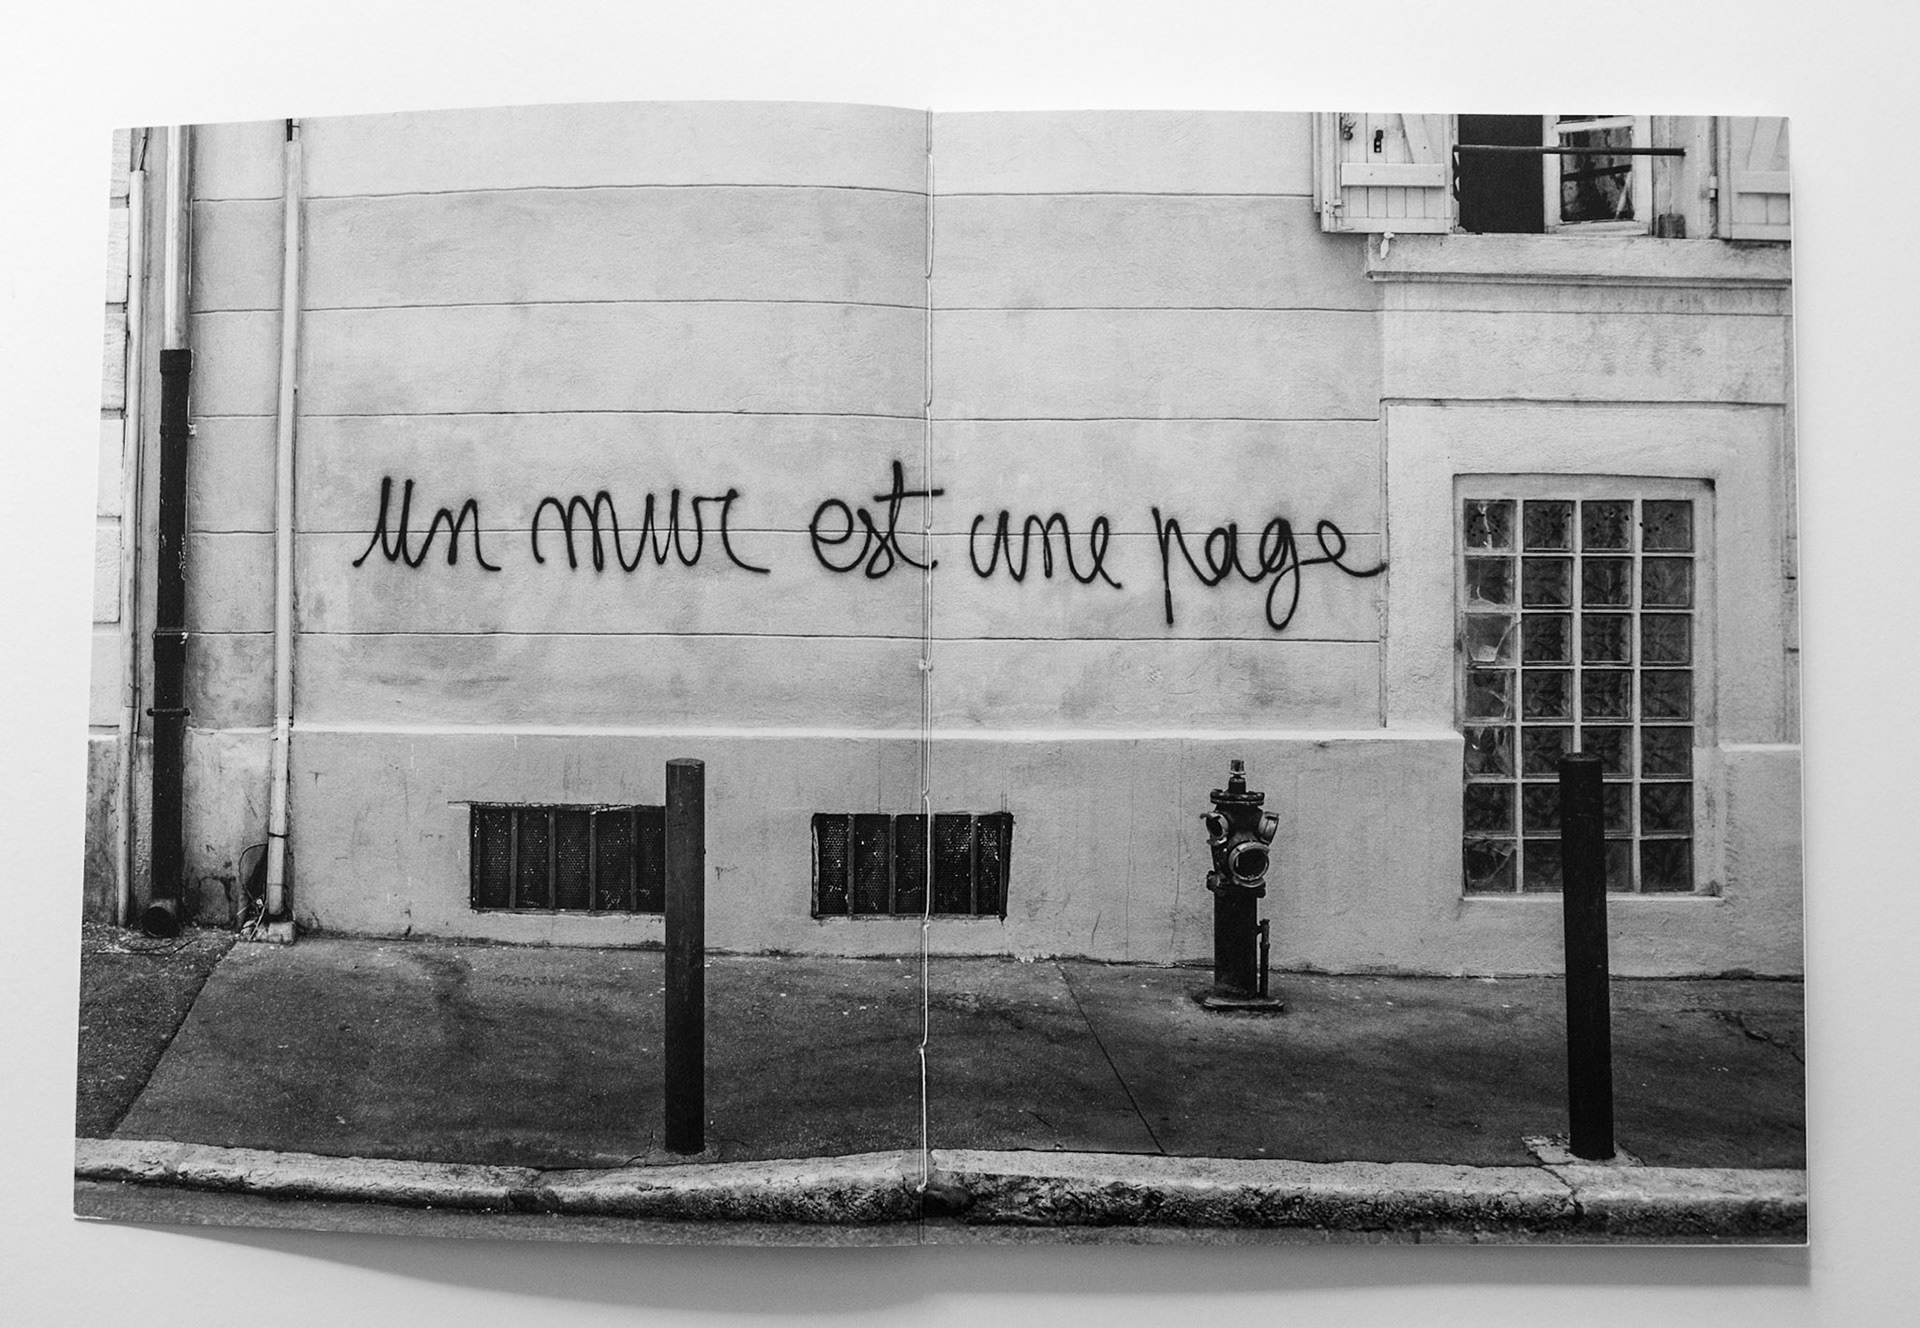 un mur est une page